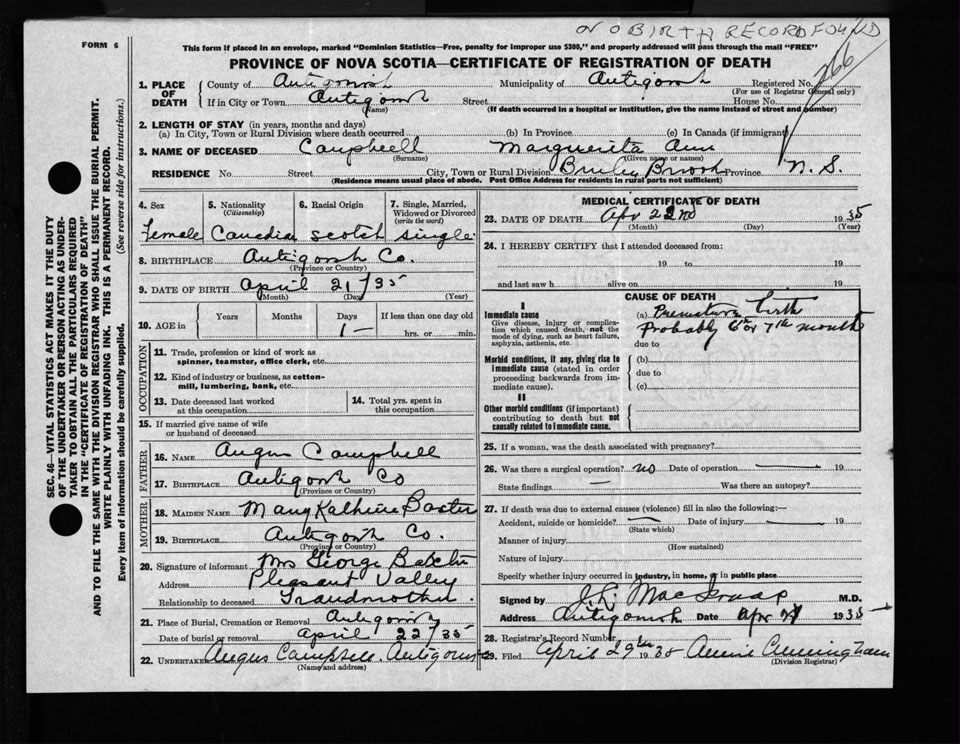 NO BIRTH RECORD FOUND
FORM 6
266
This form if placed in an envelope, marked "Dominion Statistics—Free, penalty for improper use $300," and properly addressed will pass through the mail "FREE"
PROVINCE OF NOVA SCOTIA—CERTIFICATE OF REGISTRATION OF DEATH
1. PLACE OF DEATH County of Antigonish Municipality of Antigonish Registered No.
(For use of Registrar General only)
If in City or Town Antigonish Street House No.
(Name) (If death occurred in a hospital or institution, give the name instead of street and number)
2. LENGTH OF STAY (in years, months and days)
(a) In City, Town or Rural Division where death occurred (b) In Province (c) In Canada (if immigrant)
3. NAME OF DECEASED Campbell Marguerita Ann
(Surname) (Given name or names)
RESIDENCE No. Street City, Town or Rural Division Briley Brook Province N. S.
(Residence means usual place of abode. Post Office Address for residents in rural parts not sufficient)
SEC. 46—VITAL STATISTICS ACT MAKES IT THE DUTY
OF THE UNDERTAKER OR PERSON ACTING AS UNDER-
TAKER TO OBTAIN ALL THE PARTICULARS REQUIRED
IN THE "CERTIFICATE OF REGISTRATION OF DEATH"
AND TO FILE THE SAME WITH THE DIVISION REGISTRAR WHO SHALL ISSUE THE BURIAL PERMIT.
WRITE PLAINLY WITH UNFADING INK. THIS IS A PERMANENT RECORD.
Every item of information should be carefully supplied. (See reverse side for instructions.)
4. Sex 5. Nationality (Citizenship) 6. Racial Origin 7. Single, Married, Widowed or Divorced (write the word)
Female Canadia Scotch single
8. BIRTHPLACE Antigonish Co.
(Province or Country)
9. DATE OF BIRTH April 21/35
(Month) (Day) (Year)
10. AGE in Years Months Days If less than one day old
1— hrs. or min.
OCCUPATION
11. Trade, profession or kind of work as
spinner, teamster, office clerk, etc.
12. Kind of industry or business, as cotton-
mill, lumbering, bank, etc.
13. Date deceased last worked
at this occupation
14. Total yrs. spent in
this occupation
15. If married give name of wife
or husband of deceased
FATHER
16. NAME Angus Campbell
17. BIRTHPLACE Antigonish Co
(Province or Country)
MOTHER
18. MAIDEN NAME Mary Katherine Baxter
19. BIRTHPLACE Antigonish Co.
(Province or Country)
20. Signature of informant Mrs George Baxter
Address Pleasant Valley
Relationship to deceased Grandmother
21. Place of Burial, Cremation or Removal Antigonish
Date of burial or removal April 22/35
22. UNDERTAKER Angus Campbell. Antigonish
(Name and address)
MEDICAL CERTIFICATE OF DEATH
23. DATE OF DEATH Apr 22nd 1935
(Month) (Day) (Year)
24. I HEREBY CERTIFY that I attended deceased from:
19 to 19
and last saw h alive on 19
CAUSE OF DEATH
I
Immediate cause
Give disease, injury or complica-
tion which caused death, not the
mode of dying, such as heart failure,
asphyxia, asthenia, etc.
(a) Premature birth
Probably 6th or 7th month
due to
Morbid conditions, if any, giving rise to
immediate cause (stated in order
proceeding backwards from im-
mediate cause).
(b)
due to
(c)
II
Other morbid conditions (if important)
contributing to death but not
causally related to immediate cause.
25. If a woman, was the death associated with pregnancy?
26. Was there a surgical operation? no Date of operation — 19
State findings — Was there an autopsy?
27. If death was due to external causes (violence) fill in also the following:—
Accident, suicide or homicide? — Date of injury — 19
(State which)
Manner of injury
(How sustained)
Nature of injury
Specify whether injury occurred in industry, in home, or in public place
Signed by M.D.
Address Antigonish Date Apr 1935
28. Registrar's Record Number
29. Filed April 29th 1935 Annie Cunningham
(Division Registrar)